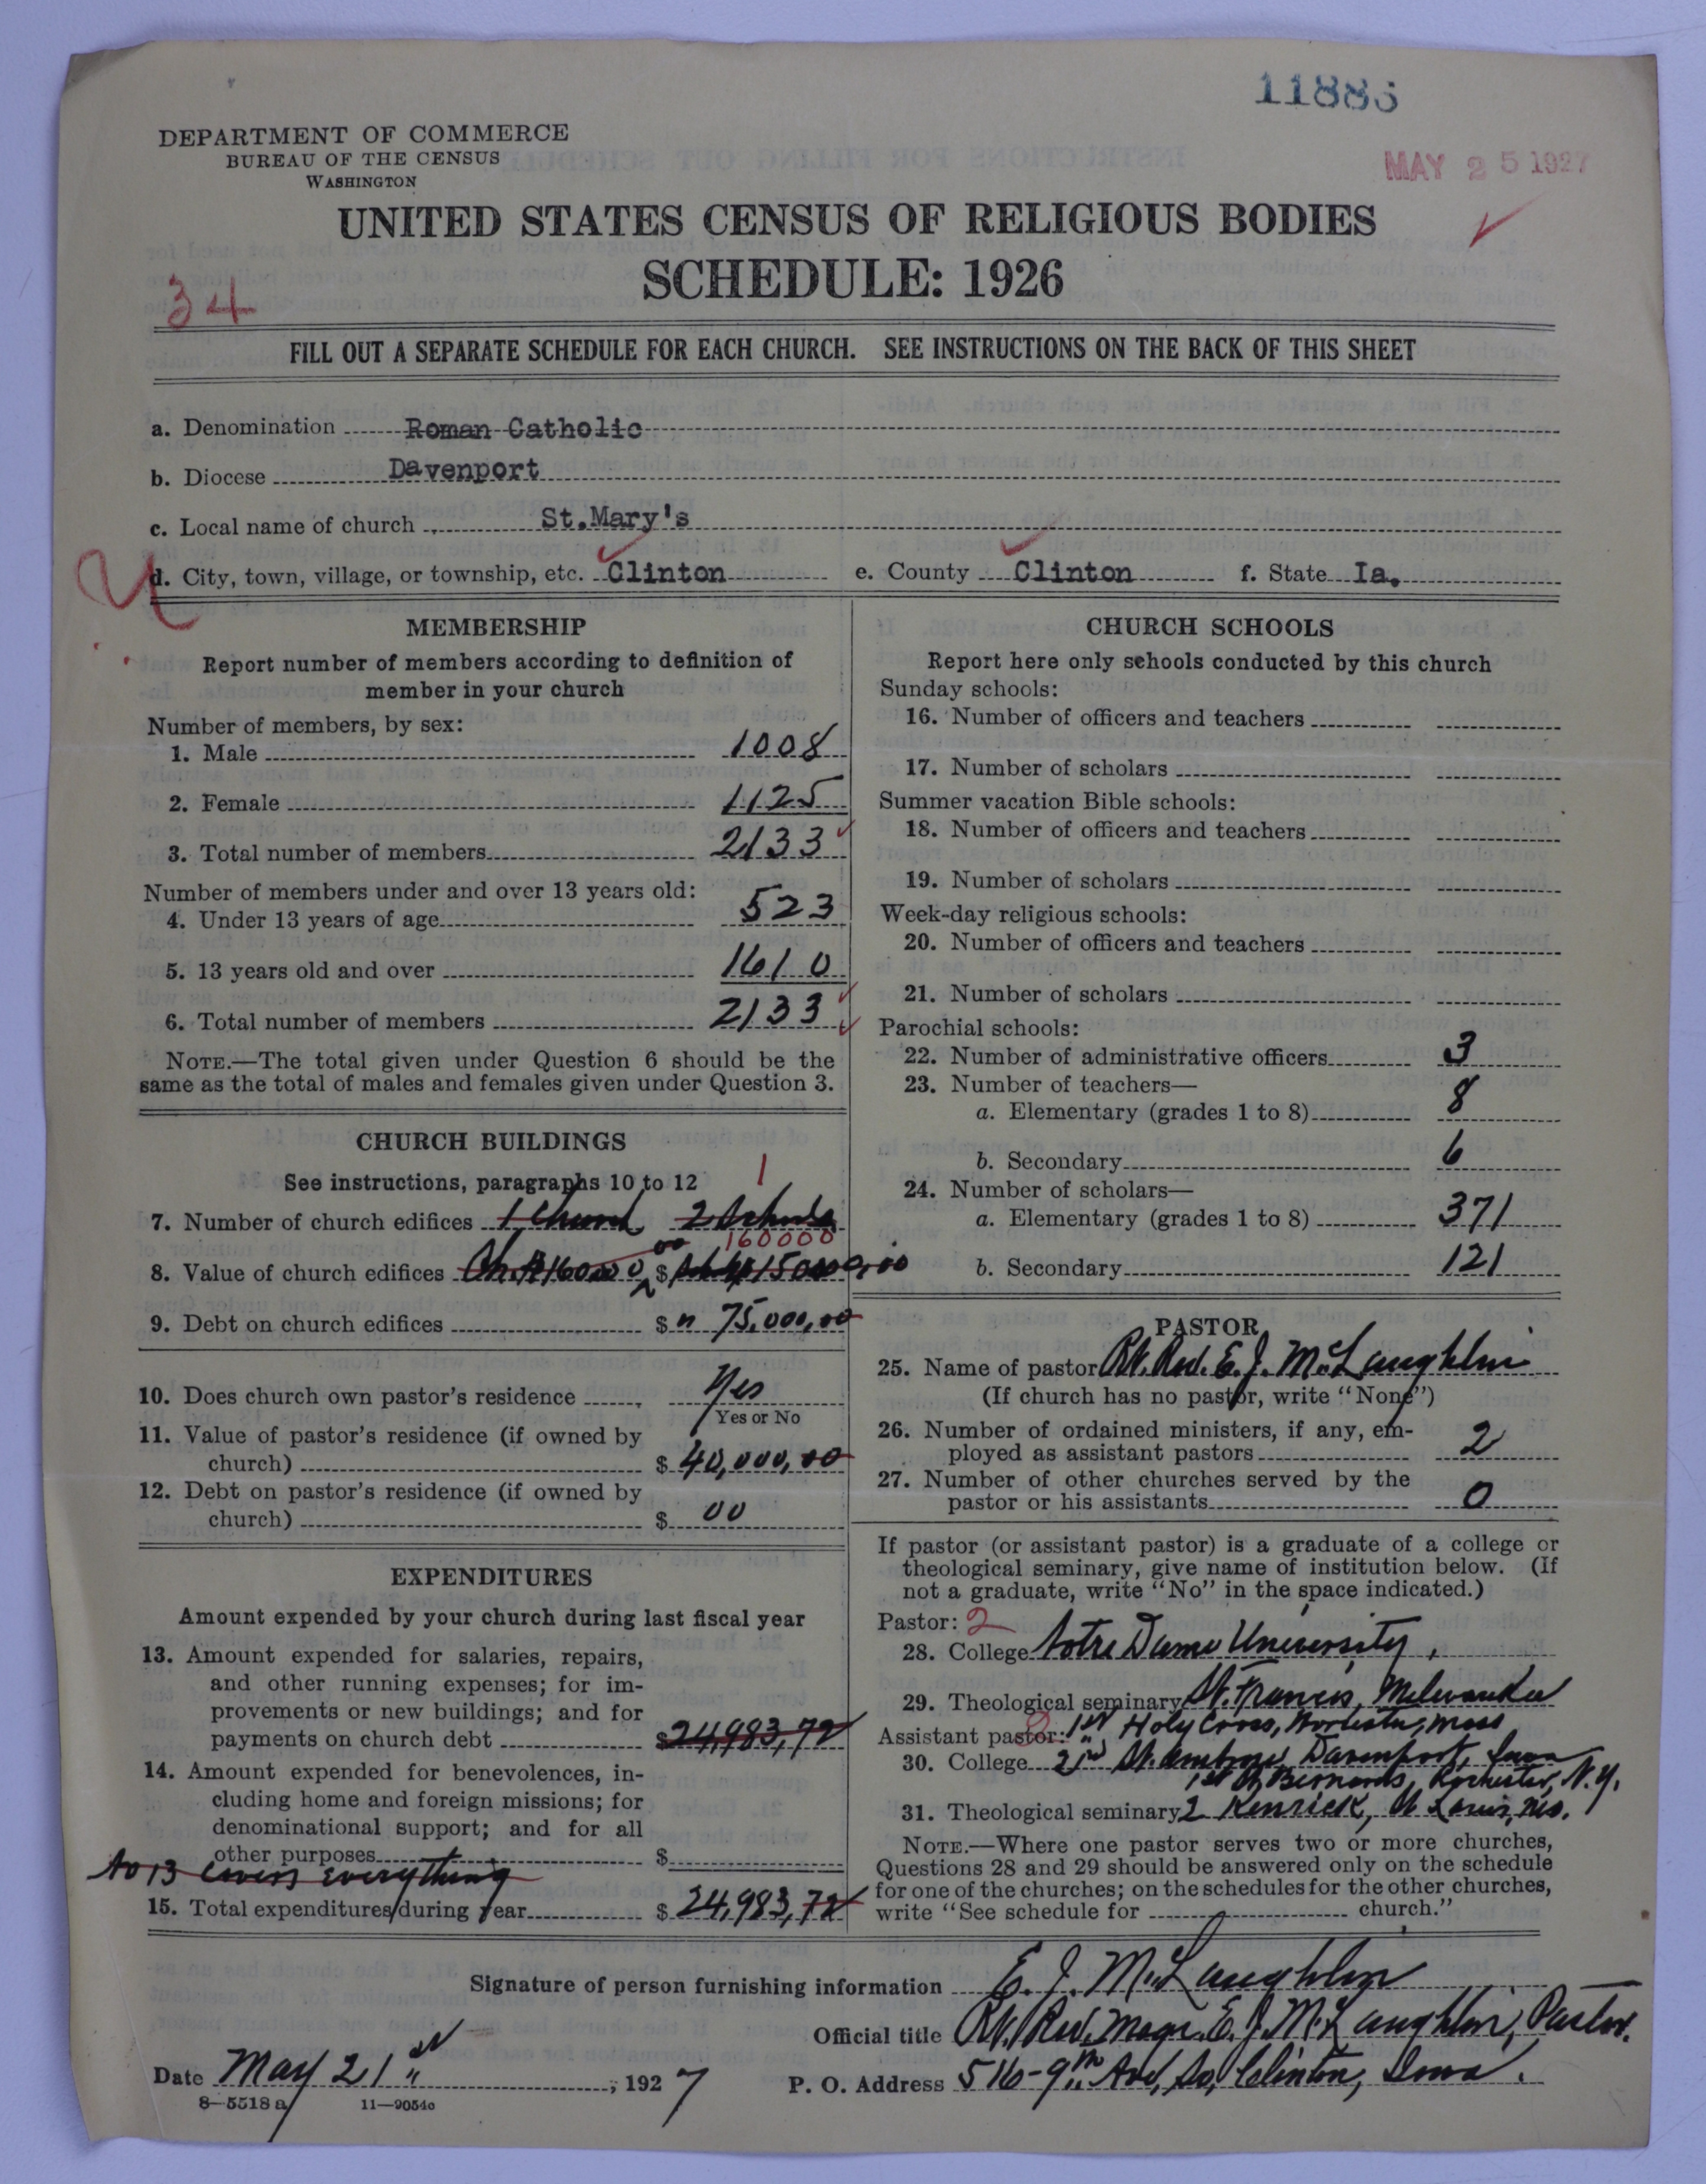 11886
DEPARTMENT OF COMMERCE
BUREAU OF THE CENSUS
WASHINGTON
MAY 25 1927
UNITED STATES CENSUS OF RELIGIOUS BODIES
SCHEDULE: 1926
34
FILL OUT A SEPARATE SCHEDULE FOR EACH CHURCH. SEE INSTRUCTIONS ON THE BACK OF THIS SHEET
a. Denomination Roman Catholic
b. Diocese Davenport
c. Local name of church St.Mary's
d. City, town, village, or township, etc. Clinton e. County Clinton f. State Ia.
MEMBERSHIP
Report number of members according to definition of
member in your church
Number of members, by sex:
1. Male 1008
2. Female 1125
3. Total number of members 2133
Number of members under and over 13 years old:
4. Under 13 years of age 523
5. 13 years old and over 1610
6. Total number of members 2133
NOTE.—The total given under Question 6 should be the
same as the total of males and females given under Question 3.
CHURCH BUILDINGS
See instructions, paragraphs 10 to 12
1
7. Number of church edifices 1 Church, 2 Schools
160000
8. Value of church edifices Ch. $160000 00 $
9. Debt on church edifices $ 75,000,00
10. Does church own pastor's residence Yes
Yes or No
11. Value of pastor's residence (if owned by
church) $ 40,000,00
12. Debt on pastor's residence (if owned by
church) $ 00
EXPENDITURES
Amount expended by your church during last fiscal year
13. Amount expended for salaries, repairs,
and other running expenses; for im-
provements or new buildings; and for
payments on church debt $24,983,72
14. Amount expended for benevolences, in-
cluding home and foreign missions; for
denominational support; and for all
other purposes $
No 13 covers everything
15. Total expenditures during year $ 24,983,72
CHURCH SCHOOLS
Report here only schools conducted by this church
Sunday schools:
16. Number of officers and teachers
17. Number of scholars
Summer vacation Bible schools:
18. Number of officers and teachers
19. Number of scholars
Week-day religious schools:
20. Number of officers and teachers
21. Number of scholars
Parochial schools:
22. Number of administrative officers 3
23. Number of teachers—
a. Elementary (grades 1 to 8) 8
b. Secondary 6
24. Number of scholars—
a. Elementary (grades 1 to 8) 371
b. Secondary 121
PASTOR
25. Name of pastor Rt. Rev. E. J. McLaughlin
(If church has no pastor, write "None")
26. Number of ordained ministers, if any, em-
ployed as assistant pastors 2
27. Number of other churches served by the
pastor or his assistants 0
If pastor (or assistant pastor) is a graduate of a college or
theological seminary, give name of institution below. (If
not a graduate, write "No" in the space indicated.)
Pastor: 2
28. College Notre Dame University,
29. Theological seminary St. Francis, Milwaukee
Assistant pastor: 1st Holy Cross, Worcester, Mass
30. College 2nd St. Ambrose Davenport, Iowa
1st St Bernards, Rochester, N.Y.
31. Theological seminary 2 Kenrick, St Louis, Mo.
NOTE.—Where one pastor serves two or more churches,
Questions 28 and 29 should be answered only on the schedule
for one of the churches; on the schedules for the other churches,
write "See schedule for church."
Signature of person furnishing information E. J. McLaughlin
Official title Rt. Rev. Msgr. E. J. McLaughlin, Pastor.
Date May 21st, 1927 P. O. Address 516-9th Ave, So, Clinton, Iowa.
8—5518a 11—9054c